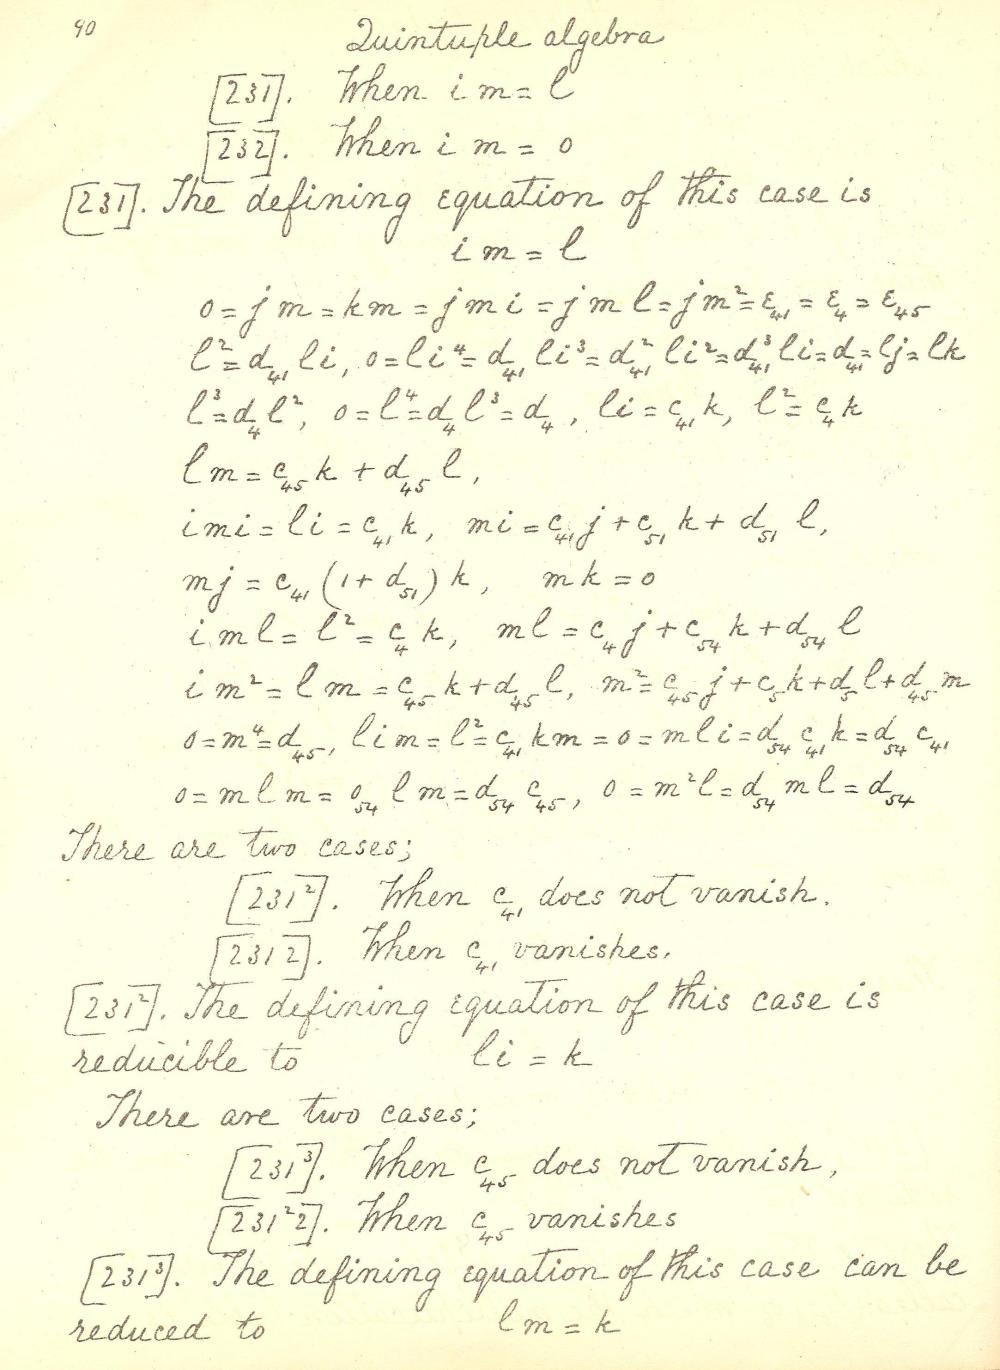 40
Quintuple algebra
[231]. When i m = l
[232]. When i m = 0
[231]. The defining equation of this case is
i m = l
0 = j m = k m = j m i = j m l = j m² = ε₄₁ = ε₄ = ε₄₅
l² = d₄₁ l i, 0 = l i⁴ = d₄₁ l i³ = d₄₁² l i² = d₄₁³ l i = d₄₁ = l j = l k
l³ = d₄ l², 0 = l⁴ = d₄ l³ = d₄, l i = c₄₁ k, l² = c₄ k
l m = c₄₅ k + d₄₅ l,
i m i = l i = c₄₁ k, m i = c₄₁ j + c₅₁ k + d₅₁ l,
m j = c₄₁ (1 + d₅₁) k, m k = 0
i m l = l² = c₄ k, m l = c₄ j + c₅₄ k + d₅₄ l
i m² = l m = c₄₅ k + d₄₅ l, m² = c₄₅ j + c₅ k + d₅ l + d₄₅ m
0 = m⁴ = d₄₅, l i m = l² = c₄₁ k m = 0 = m l i = d₅₄ c₄₁ k = d₅₄ c₄₁
0 = m l m = d₅₄ l m = d₅₄ c₄₅, 0 = m² l = d₅₄ m l = d₅₄
There are two cases;
[231²]. When c₄₁ does not vanish.
[2312]. When c₄₁ vanishes.
[231²]. The defining equation of this case is
reducible to l i = k
There are two cases;
[231³]. When c₄₅ does not vanish,
[231²2]. When c₄₅ vanishes
[231³]. The defining equation of this case can be
reduced to l m = k